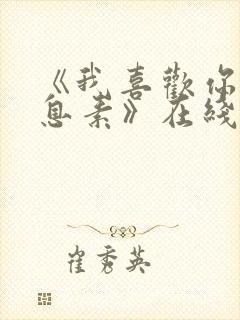 《我喜歡你
息素》在綫
崔秀英